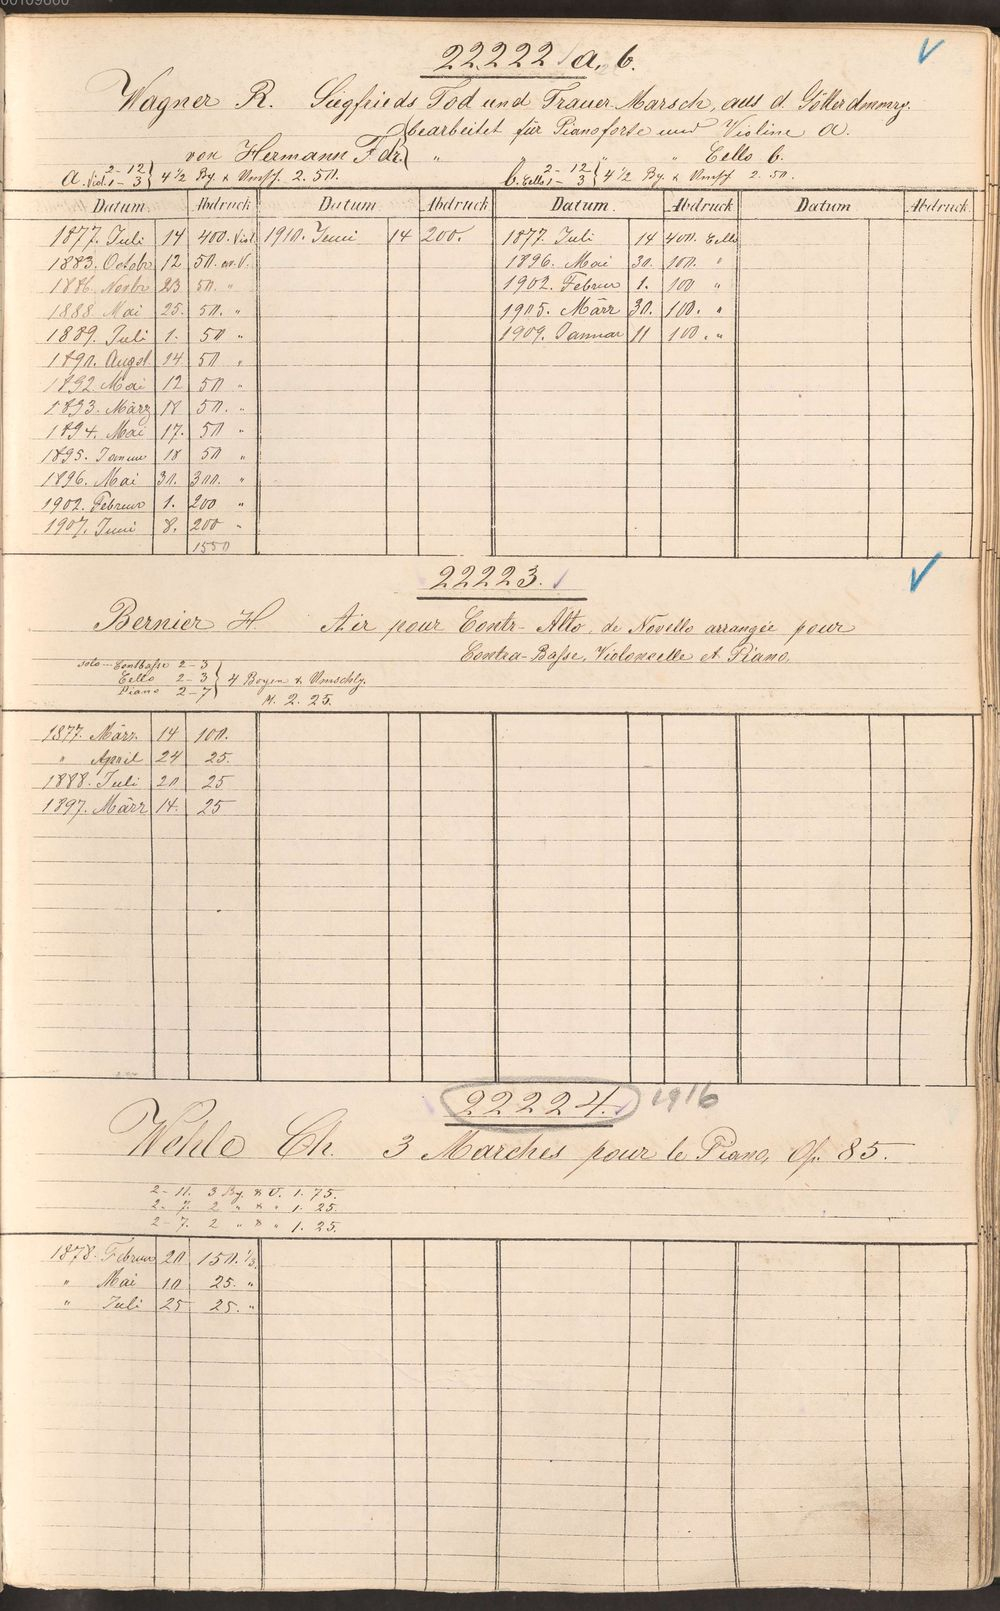 22222 a. b.
Wagner R. Siegfrieds Tod und Trauer-Marsch, aus d. Götterdmmrg.
bearbeitet für Pianoforte und Violine a.
von Hermann Fdr. " " " " Cello b.
a. Viol. 2-12 1-3 } 4 1/2 Bg. & Umsch. 2. 50.
b. Cello 2-12 1-3 } 4 1/2 Bg. & Umsch. 2. 50.
Datum Abdruck Datum Abdruck Datum Abdruck Datum Abdruck
1877. Juli 14 400. Viol. 1910. Juni 14 200. 1877. Juli 14 400. Cello
1883. Octobr 12 50. m. V. 1896. Mai 30. 100. "
1886. Novbr 23 50. " 1902. Februar 1. 100 "
1888. Mai 25. 50. " 1905. März 30. 100. "
1889. Juli 1. 50 " 1909. Januar 11 100. "
1890. Augst. 14 50 "
1892. Mai 12 50 "
1893. März 18 50. "
1894. Mai 17. 50 "
1895. Januar 18 50 "
1896. Mai 30. 300. "
1902. Februar 1. 200 "
1907. Juni 8. 200 "
1550
22223.
Bernier H. Air pour Contr-Alto, de Novello arrangée pour
Contra-Basse, Violoncelle et Piano.
Solo-Contbasse 2-3
Cello 2-3 } 4 Bogen & Umschlg.
Piano 2-7
M. 2. 25.
1877. März 14 100.
" April 24 25.
1888. Juli 20 25
1897. März 14. 25
22224. 1916
Wehle Ch. 3 Marches pour le Piano, Op. 85.
2-11. 3 Bg. & U. 1. 75.
2-7. 2 " & " 1. 25.
2-7. 2 " & " 1. 25.
1878. Februar 20 150. 1/3.
" Mai 10 25. "
" Juli 25 25. "